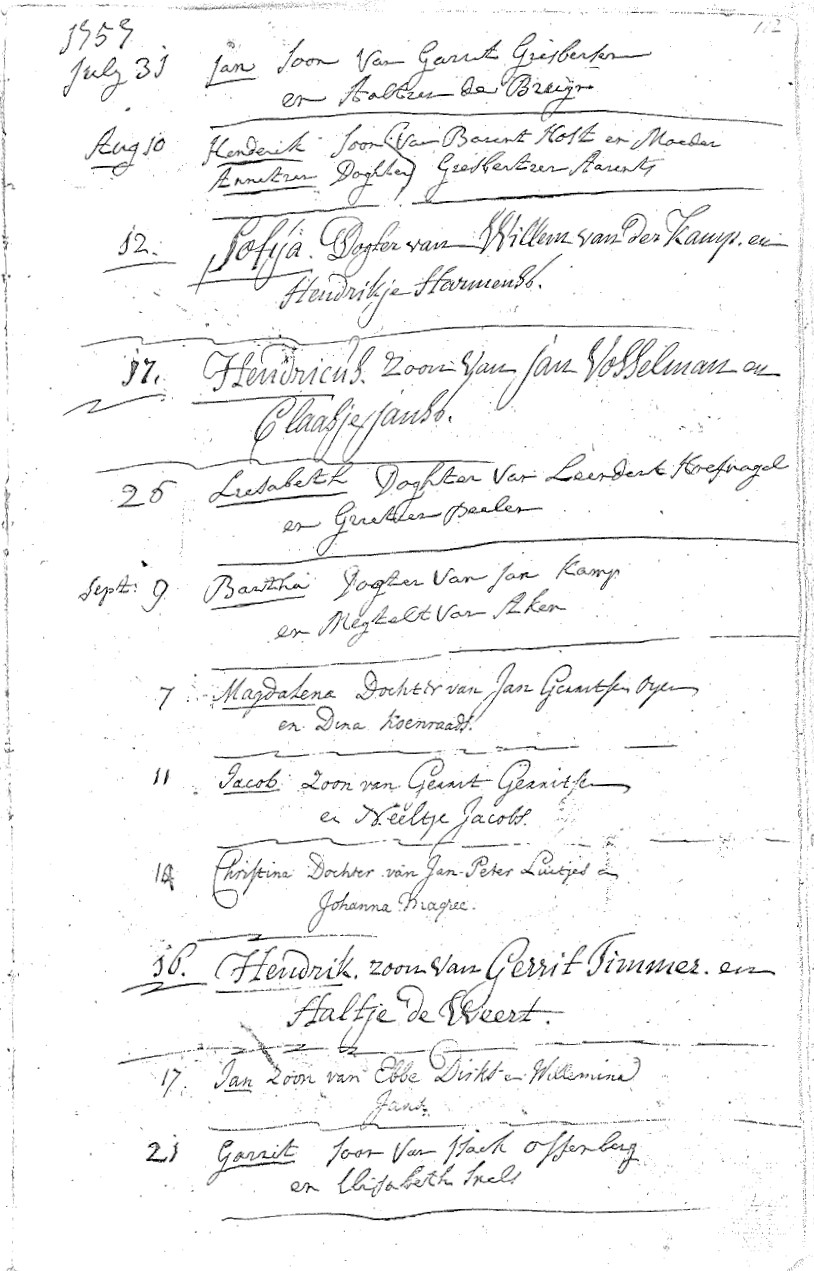 112
1759
July 31 Jan Soon Van Garrit Gisbertsen
en Aaltien de Bruijn
Aug 10 Henderik Soon Van Barent Holt en Moeder
Annetien Doghter Giesbertien Aarents
12. Sofija. Dogter van Willem van der Kamp. en
Hendrikje Harmensb.
17. Hendricus. zoon Van Jan Vosselman en
Claasje jansb.
26 Liesabeth Doghter Van Leendert Hoefnagel
en Grietien Peelen
Sept: 9 Bartha Dogter Van Jan Kamp
en Megtelt Van Aken
7 Magdalena Dochter van Jan Gerritsen Oyen
en Dina Koenraads.
11 Jacob Zoon van Gerrit Gerritsen
en Neeltje Jacobs.
14 Christina Dochter van Jan Peter Luitjes en
Johanna Magree.
16. Hendrik. zoon Van Gerrit Timmer. en
Aaltje de Weert.
17. Jan Zoon van Ebbe Dirks en Willemina
Jans.
21 Garrit Soon Van Isack Offenberg
en Elisabeth Snels